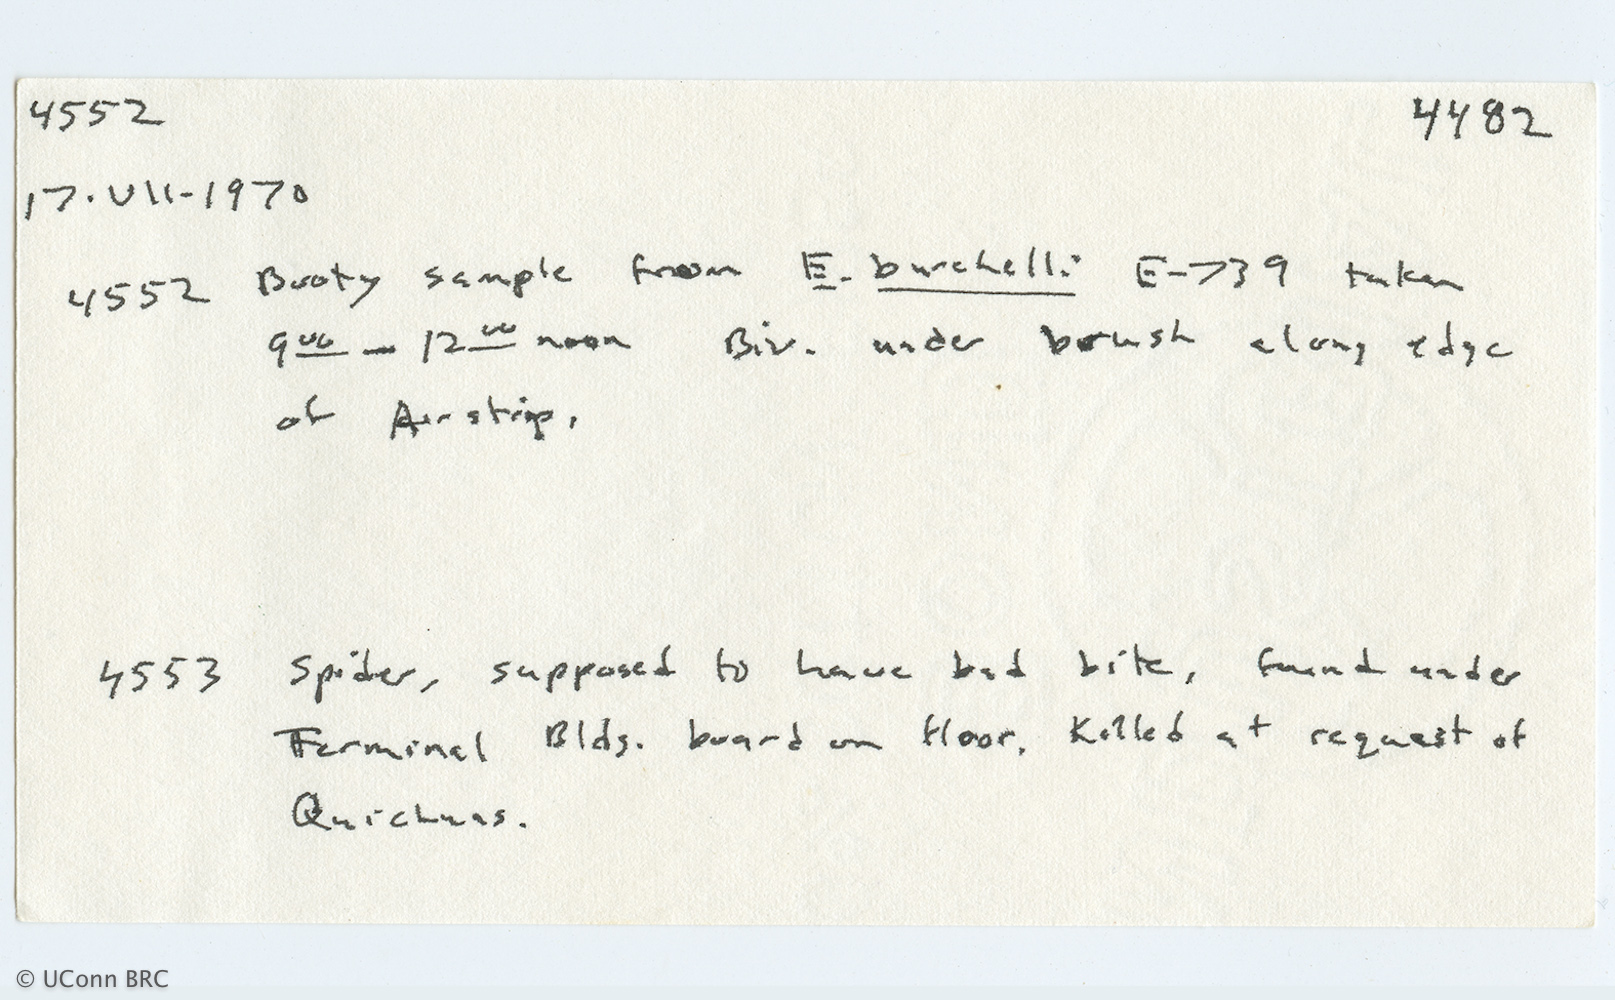 4552 4482
17-VII-1970
4552 Booty sample from E. burchelli E-739 taken
9⁰⁰ – 12⁰⁰ noon Biv. under brush along edge
of Airstrip.
4553 Spider, supposed to have bad bite, found under
Terminal Bldg. board on floor. Killed at request of
Quichuas.
© UConn BRC